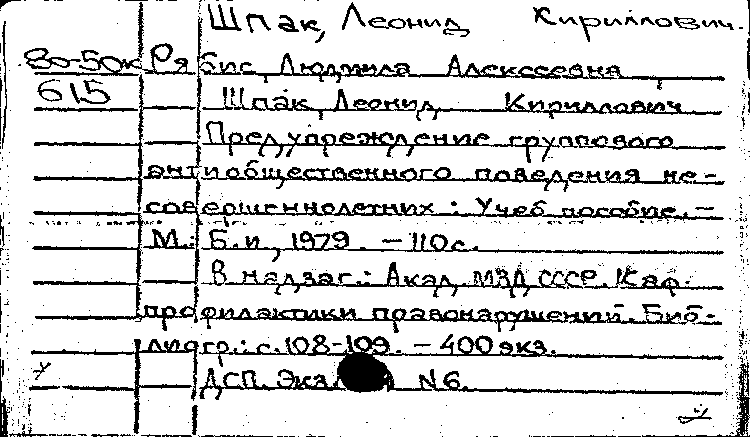 Шпак, Леонид Кириллович.
80-50к Рябис, Людмила Алексеевна
615 Шпак, Леонид Кириллович
Предупреждение группового
антиобщественного поведения не-
совершеннолетних: Учеб. пособие. —
М.: Б.и., 1979. — 110 с.
В надзаг.: Акад. МВД СССР. Каф.
профилактики правонарушений. Биб-
лиогр.: с. 108-109. — 400 экз.
ДСП. N6.